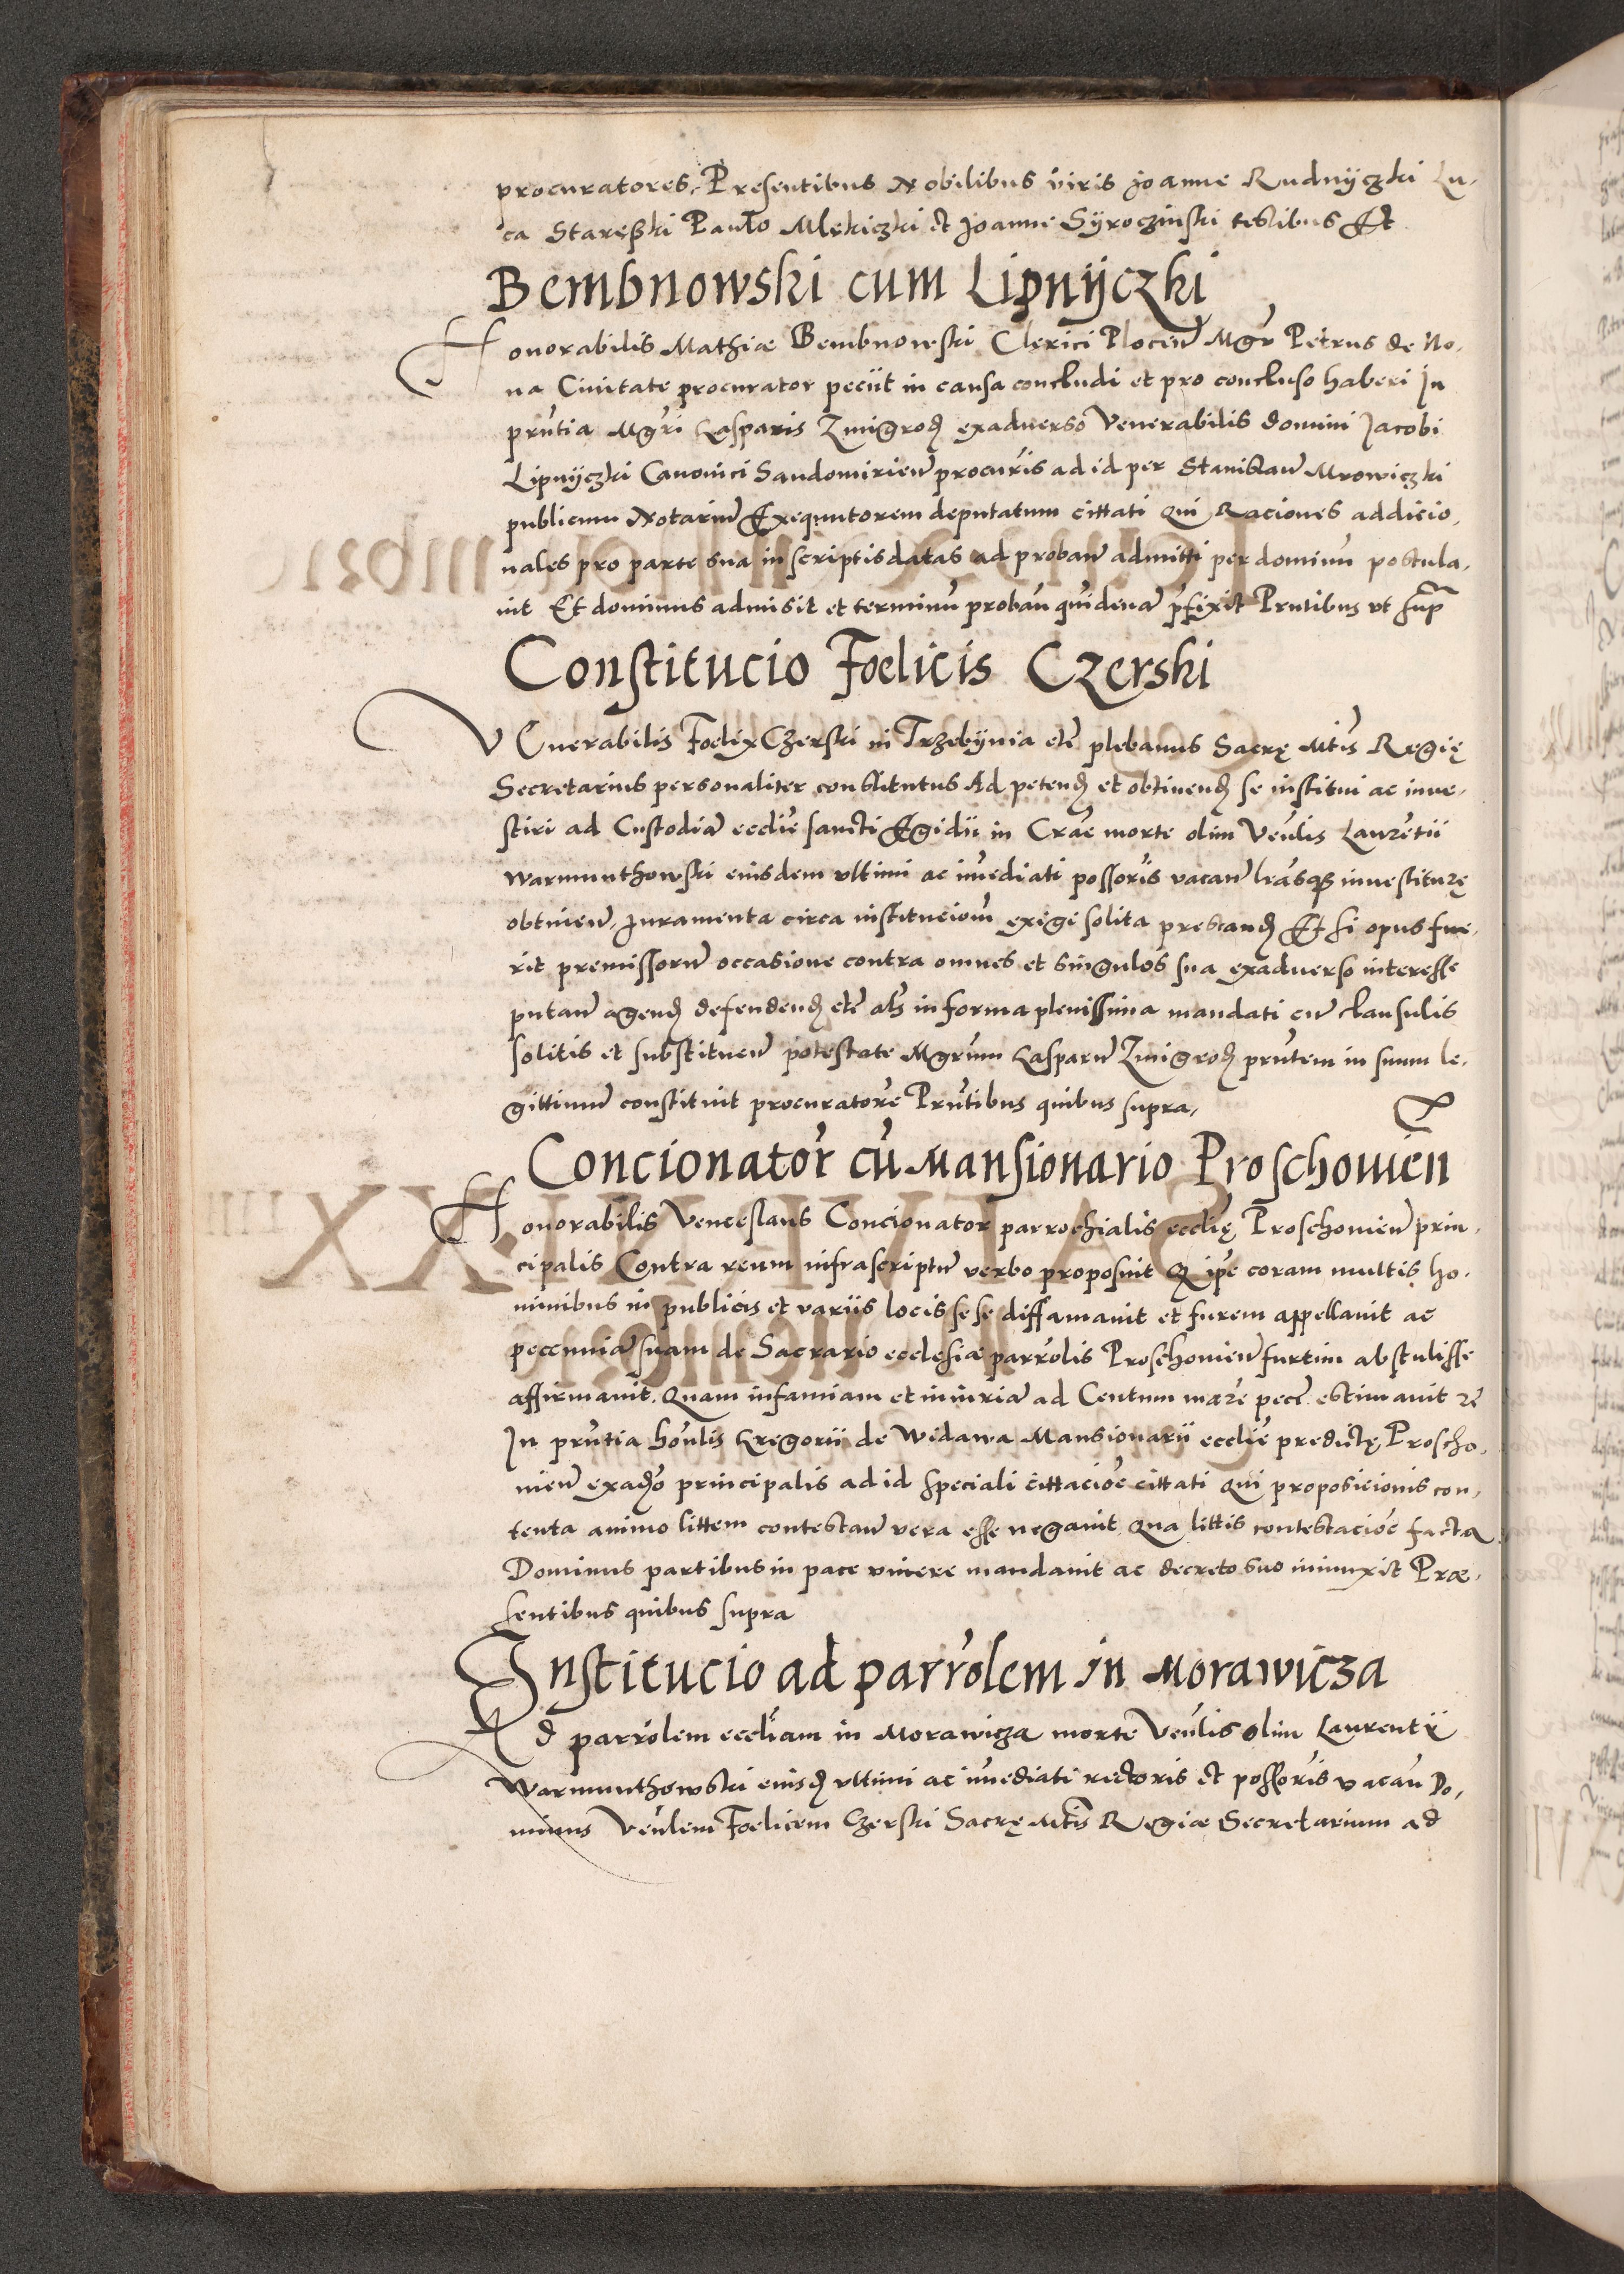 procuratores, Presentibus Nobilibus viris Joanne Rudnyczki Lu,
ca Staręski Paulo Mlekiczki et Joanne Syroczinski testibus Et
Bembnowski cum Lipnyczki
Honorabilis Mathiæ Bembnowski Clerici Plocen Mgr Petrus de No,
va Civitate procurator peciit in causa concludi et pro concluso haberi In
prntia Mgri Casparis Zmigrod exadverso Venerabilis domini Jacobi
Lipnyczki Canonici Sandomirien procuris ad id per Stanislaum Mrowiczki
publicum Notarium Exequutorem deputatum cittati Qui Raciones addicio,
nales pro parte sua in scriptis datas ad proband admitti per dominum postula,
vit Et dominus admisit et terminu proban quindena prefixit Prntibus ut supra
Constitucio Foelicis Czerski
VEnerabilis Foelix Czerski in Trzebynia etc plebanus Sacrę Mtis Regię
Secretarius personaliter constitutus Ad petend et obtinend se institui ac inve,
stiri ad Custodia ecclie sancti Egidii in Crac morte olim Venlis Laurentii
Warmunthowski eiusdem ultimi ac imediati possoris vacan lrasque investiturę
obtinen, Juramenta circa institucionem exigi solita prestand Et si opus fue,
rit premissorum occasione contra omnes et singulos sua exadverso interesse
putan agend defendend etc als in forma plenissima mandati cum clausulis
solitis et substituen potestate Mgrum Casparum Zmigrod prntem in suum le,
gittimum constituit procuratore Prntibus quibus supra,
Concionator cu Mansionario Proschovien
Honorabilis Venceslaus Concionator parrochialis ecclię Proschovien prin,
cipalis Contra reum infrascriptum verbo proposuit Q ipe coram multis ho,
minibus in publicis et variis locis sese diffamavit et furem appellavit ac
peccunia suam de Sacrario ecclesiæ parrolis Proschovien furtim abstulisse
affirmavit. Quam infamiam et iniuria ad Centum marc pecc estimavit rc
In prntia honlis Gregorii de Widawa Mansionarii ecclie predictę Proscho,
vien exado principalis ad id speciali cittacioe cittati Qui proposicionis con,
tenta animo littem contestan vera esse negavit Qua littis contestacioe facta
Dominus partibus in pace vivere mandavit ac decreto suo iniunxit Præ,
sentibus quibus supra
Institucio ad parrolem in Morawicza
Ad parrolem eccliam in Morawicza morte Venlis olim Laurentii
Warmunthowski eiusd ultimi ac imediati rectoris et possoris vacan Do,
minus Venlem Foelicem Czerski Sacrę Mtis Regiæ Secretarium ad